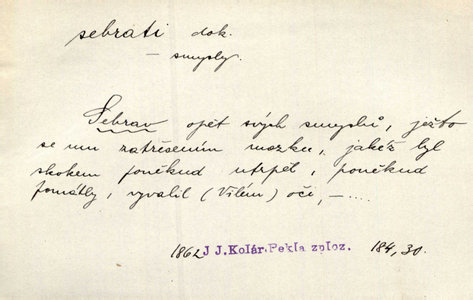 sebrati dok.
— smysly.
Sebrav opět svých smyslů, ježto
se mu zatřesením mozku, jakéž byl
skokem poněkud utrpěl, poněkud
pomátly, vyvalil (Vilém) oči, — ....
1862 J J. Kolár. Pekla zploz. 184, 30.